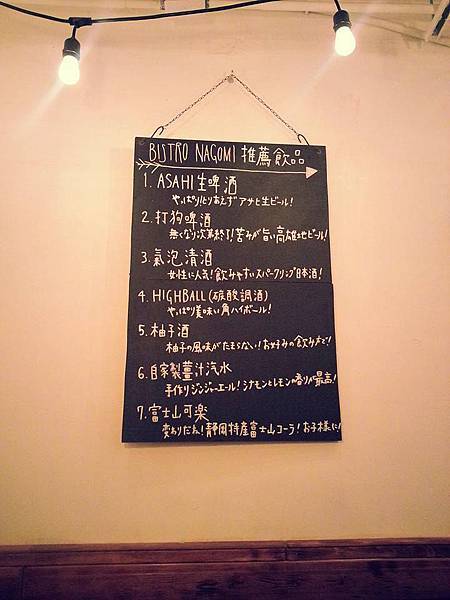 BISTRO NAGOMI 推薦飲品
1. ASAHI 生啤酒
やっぱりとりあえずアサヒ生ビール!
2. 打狗啤酒
無くなり次第終了!苦みが旨い高雄地ビール!
3. 氣泡清酒
女性に人気!飲みやすいスパークリング日本酒!
4. HIGHBALL (碳酸調酒)
やっぱ美味い角ハイボール!
5. 柚子酒
柚子の風味がたまらない!お好みの飲み方で!
6. 自家製薑汁汽水
手作りジンジャーエール!シナモンとレモンの香りが最高!
7. 富士山可樂
変わりだね!静岡特産富士山コーラ!お子様に!